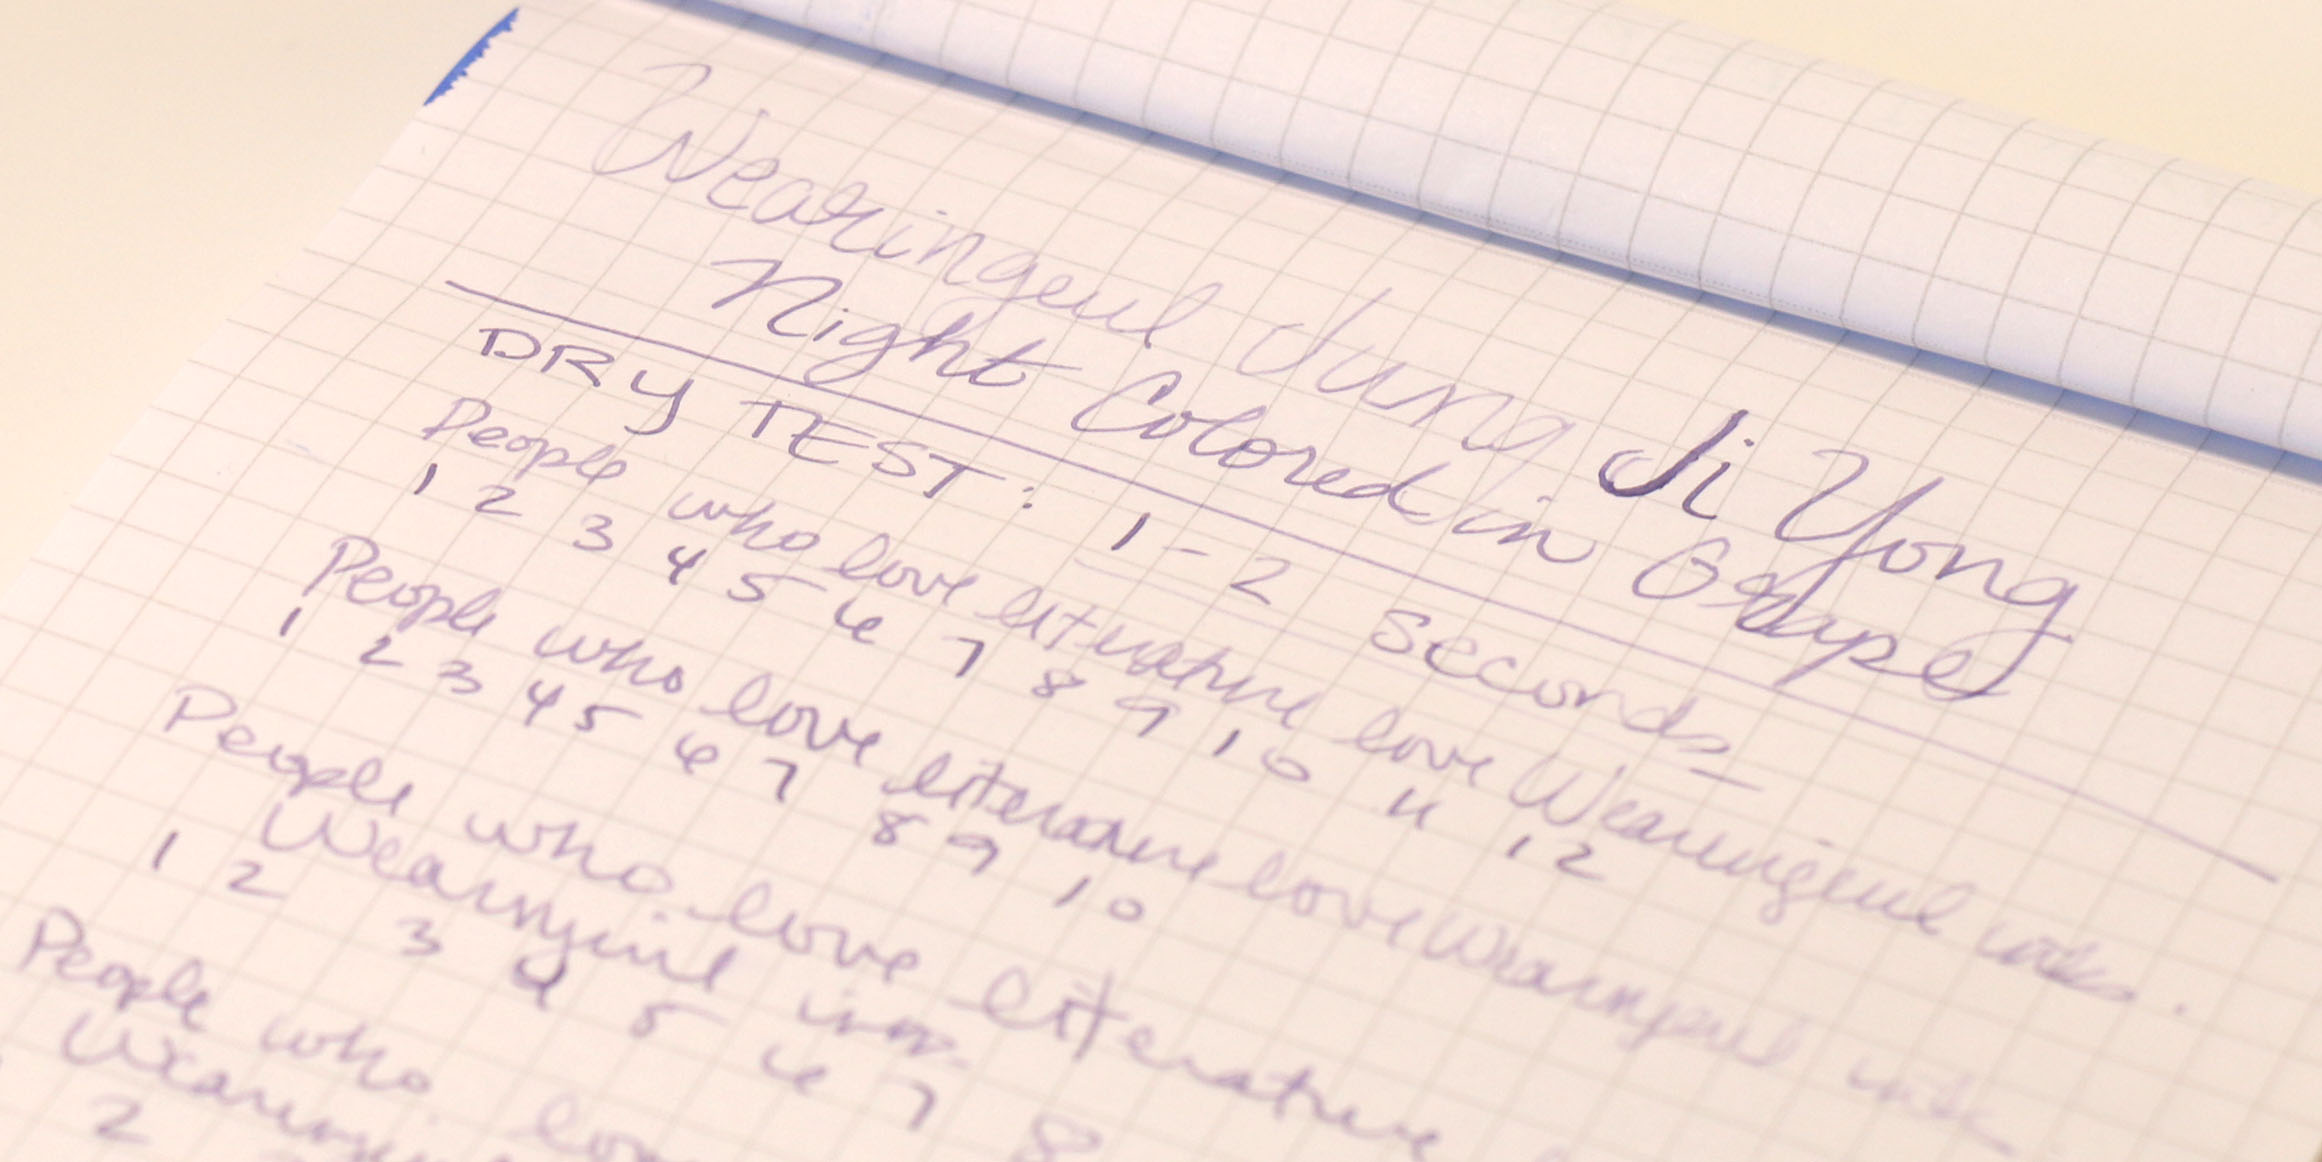 Wearingeul Jung Ji Yong
Night Colored in Grape
DRY TEST: 1-2 seconds
People who love literature love Wearingeul inks.
1 2 3 4 5 6 7 8 9 10 11 12
People who love literature love Wearingeul inks
1 2 3 4 5 6 7 8 9 10
People who love literature
Wearingeul inks
1 2 3 4 5 6 7 8
People who love
Wearing
2